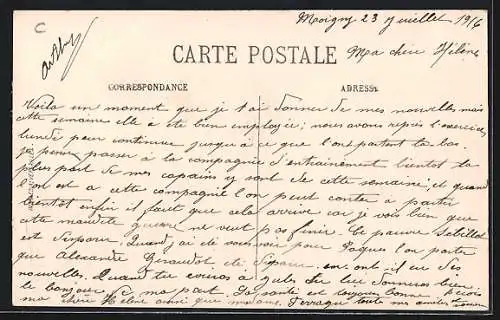 C
Moigny 23 Juillet 1916
CARTE POSTALE
Ma chère Hélène
CORRESPONDANCE
ADRESSE
Voila un moment que je t'ai donner de mes nouvelles mais
cette semaine elle a été bien employée; nous avons repris l'exercice
lundi pour continuer jusqu'à ce que l'on partent la bas.
je pense passer à la compagnie d'entrainement bientôt la
plus part de mes copains y sont de cette semaine; et quand
l'on est a cette compagnie l'on peut conter a partir
bientôt enfin il faut que cela arrive car je vois bien que
cette maudite guerre ne veut pas finir. Ce pauvre
est disparu. Quand j'ai été vous voir pour Paques l'on parter
que Alexandre Giraudot été disparu en ont il eu des
nouvelles. Quand tu écriras à Jules tu lui donneras bien
le bonjour de ma part. La santé est toujours bonne reçois
ma chère Hélène ainsi que toute mes amitiés